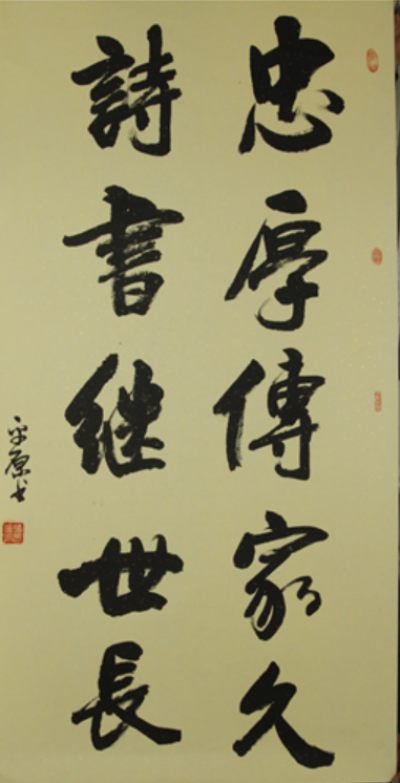 忠厚傳家久
詩書継世長
平原书